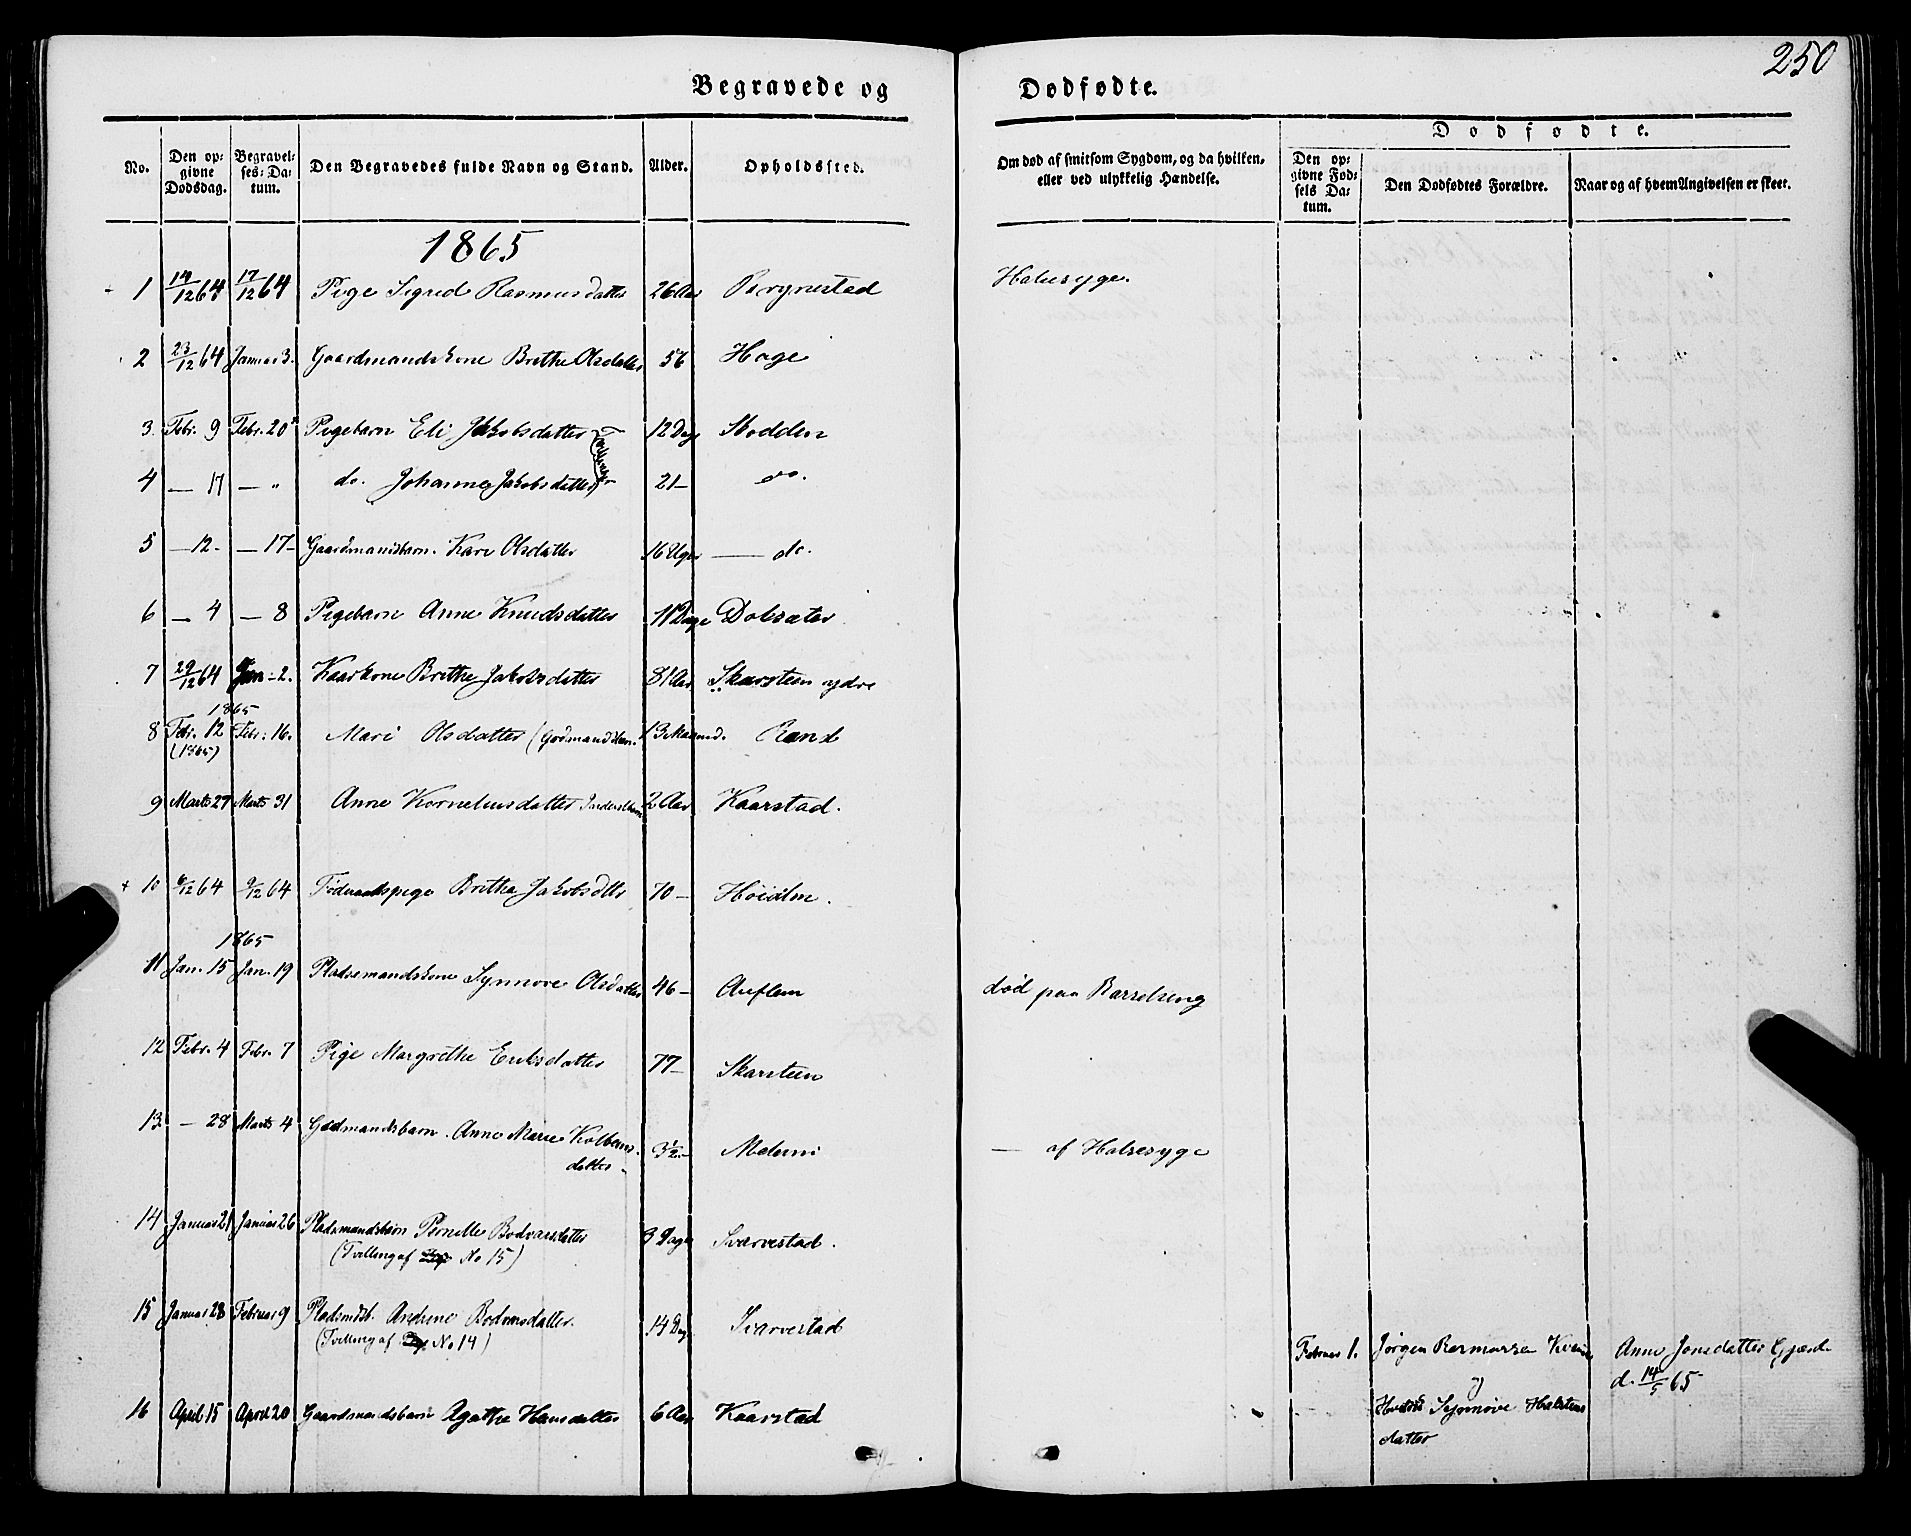 250
Begravede og Dødfødte.
No. Den opgivne Dødsdag. Begravelses-Datum. Den Begravedes fulde Navn og Stand. Alder. Opholdssted. Om død af smitsom Sygdom, og da hvilken, eller ved ulykkelig Hændelse. Dødfødte. Den opgivne Fødsels Datum. Den Dødfødtes Forældre. Naar og af hvem Angivelsen er skeet.
1865
1 14/12 64 17/12 64 Pige Sigrid Rasmusdatter 26 Aar Bergnestad Halssyge.
2 23/12 64 Januar 3. Gaardmandskone Brithe Olsdatter 56 Hage
3. Febr. 9 Febr. 20 Pigebarn Eli Jakobsdatter 12 Dage Stodden
4 — 17 — " do. Johanne Jakobsdatter 21 — do.
5 — 12 — — 17 — Gaardmandsbarn Kari Olsdatter 16 Uger — do.
6 — 4 — 8 Pigebarn Anne Knudsdatter 11 Dage Dobsæter
7 29/12 64 Jan. 2. Kaarkone Brithe Jakobsdatter 81 Aar Skarsteen ydre
1865
8 Febr. 12 Febr. 16. Mari Olsdatter (Gdmandsbarn 13 Maaned. Rand
(1865)
9 Marts 27 Marts 31 Anne Kornelinsdatter 2 Aar Kaarstad.
+ 10 6/12 64 9/12 64 Føderaadspige Brithe Jakobsdtr 70 —
1865
11 Jan. 15 Jan. 19 Pladsemandskone Synnøve Olsdatter 46 — Auflem død paa Barselseng
12 Febr. 4 Febr. 7 Pige Margrethe Eriksdatter 77 — Skarsteen
13 — 28 Marts 4 Gdmandsbarn Anne Marie Kolbens- 3 1/2 — Melemi — af Halsesyge
datter
14 Januar 21 Januar 26 Pladsmandsbarn Pernille Bodvarsdatter 3 Dage Svarvestad.
(Tvilling af No 15)
15 Januar 28 Februar 9 Pladsmdsb. Andrine Bodvarsdatter 14 Dag. Svarvestad
(Tvilling af No 14)
Februar 1. Jørgen Rasmussen Anne Jonsdatter Gjærde
d. 14/5 65
16 April 15 April 20 Gaardmandsbarn Agathe Hansdatter 6 Aar Kaarstad
og
Hustru Synnøve Halstens
datter